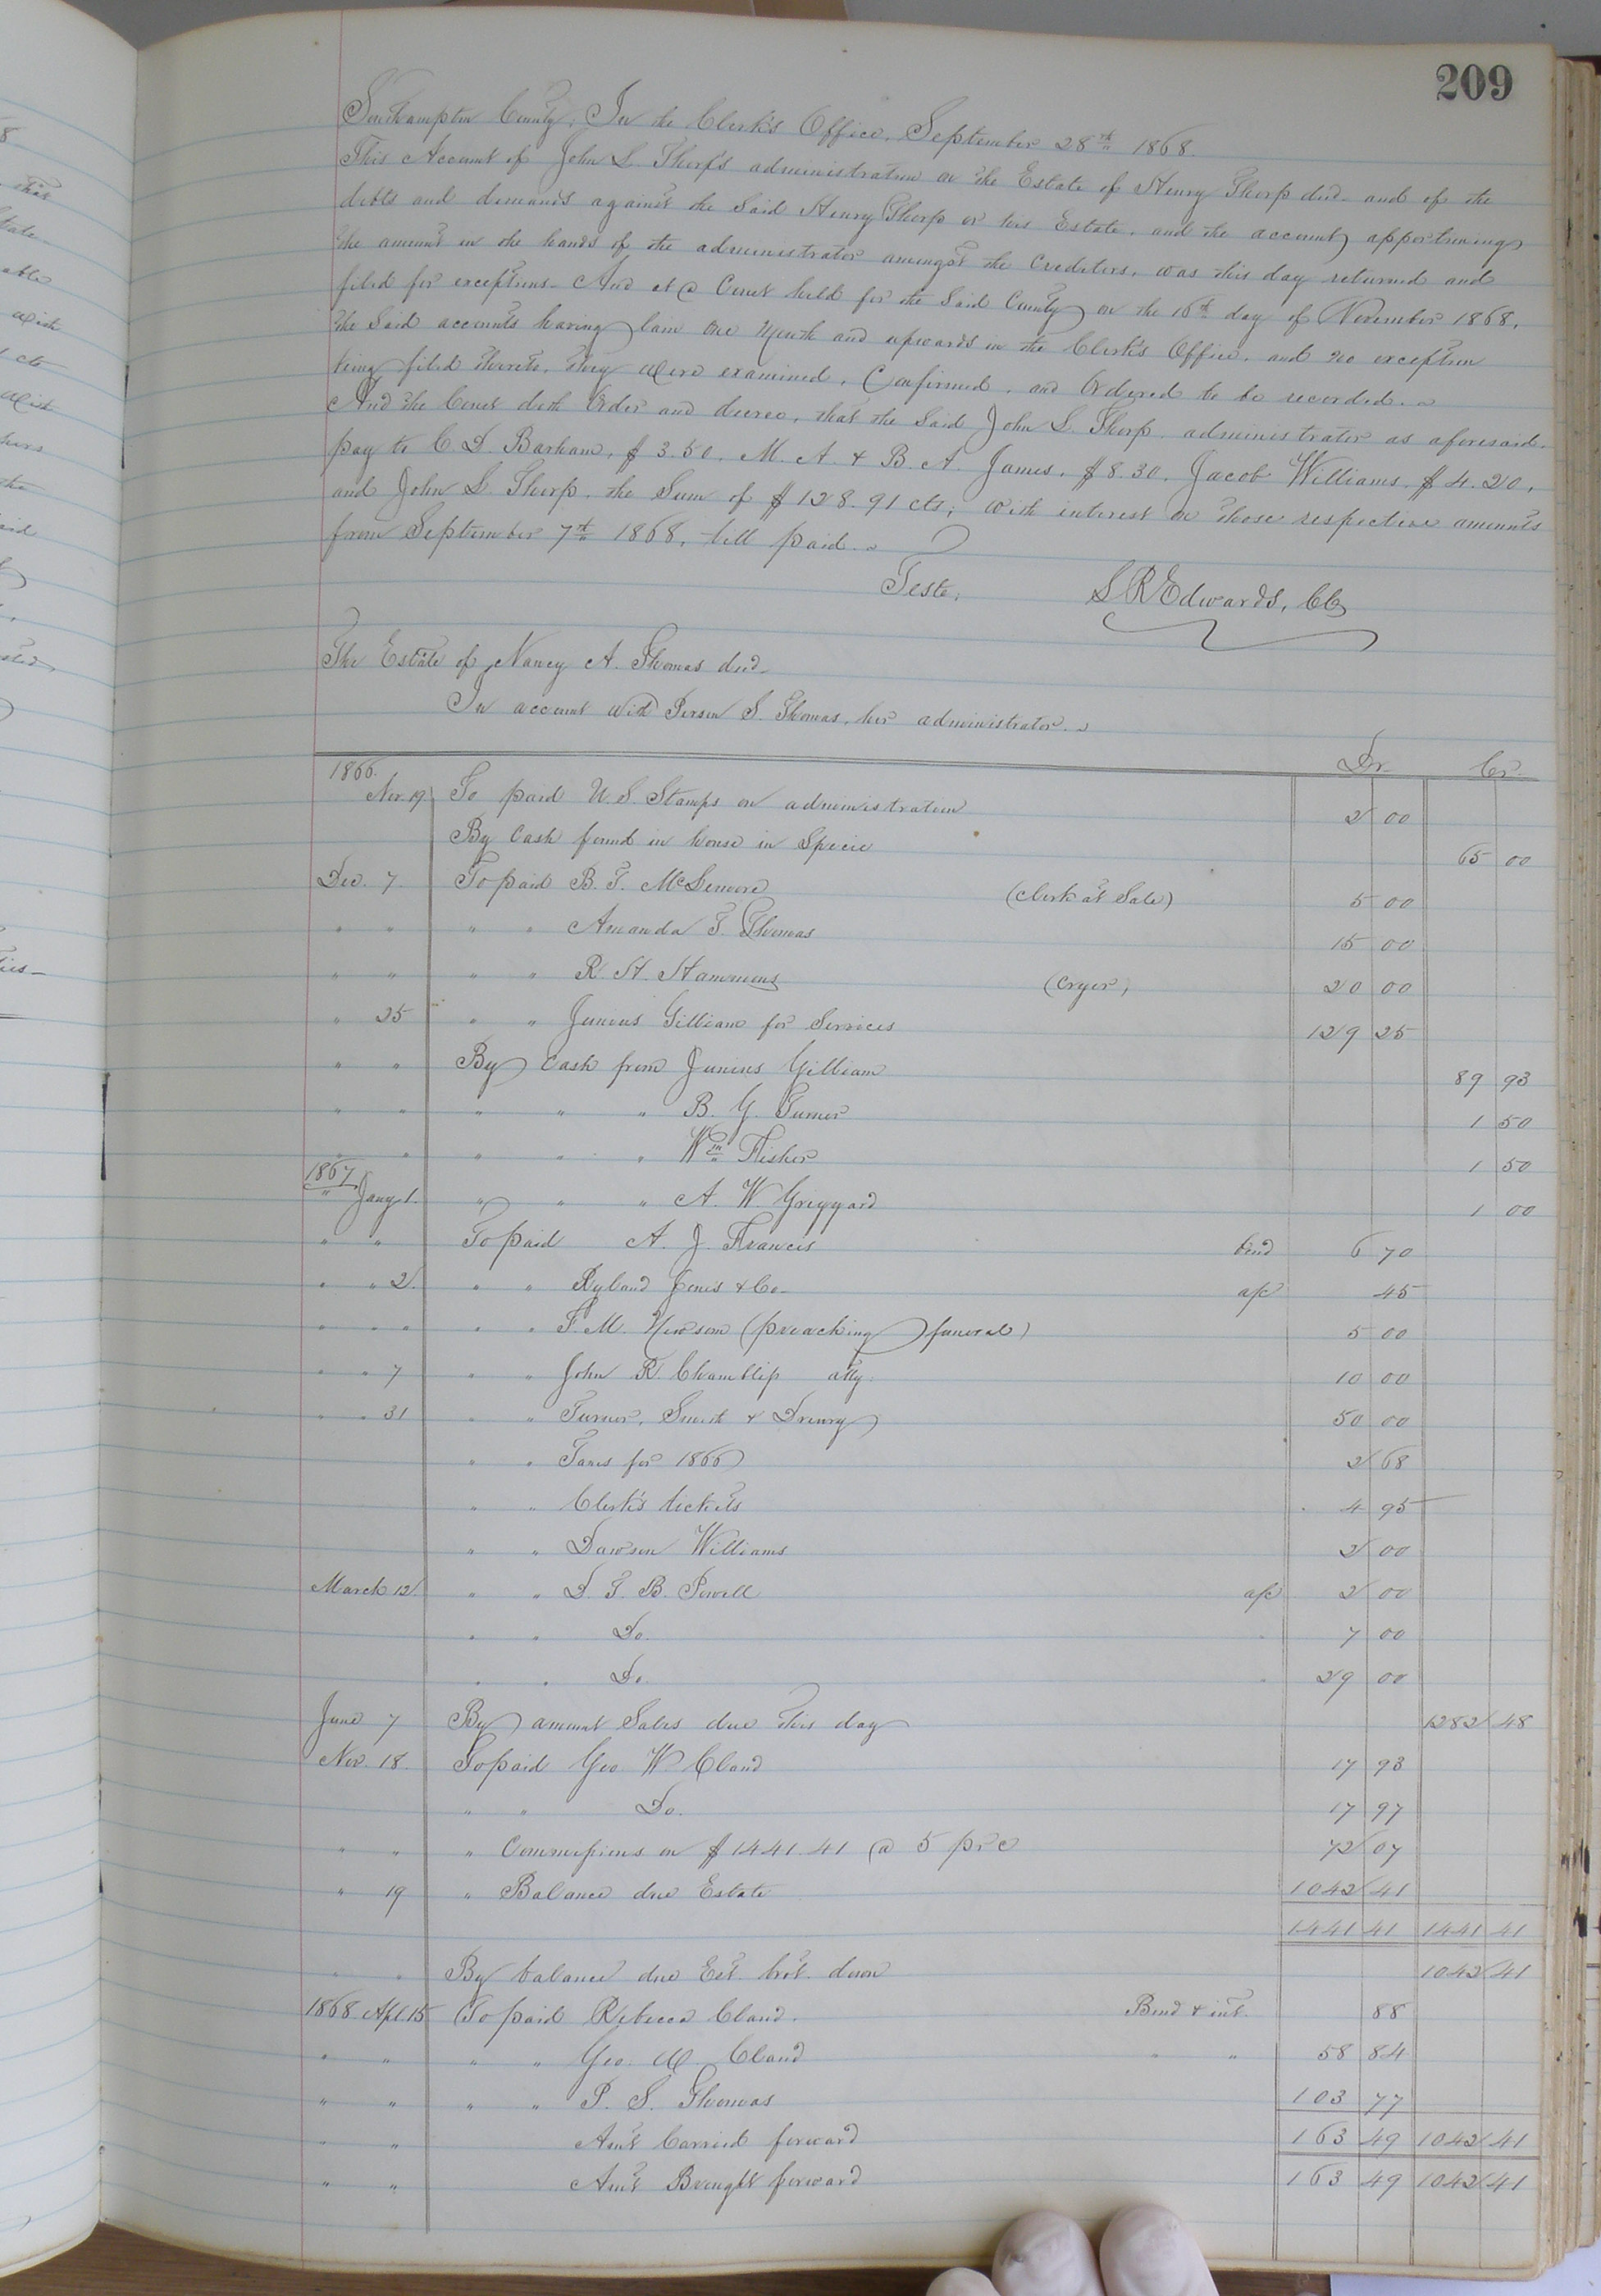 209
Southampton County, In the Clerk's Office, September 28th 1868.
This Account of John S. Thorp's administration on the Estate of Henry Thorp decd. and of the
debts and demands against the said Henry Thorp or his Estate, and the account apportioning
the amount in the hands of the administrator amongst the Creditors, was this day returned and
filed for exceptions. And at a Court held for the said County on the 16th day of November 1868,
the said accounts having lain one Month and upwards in the Clerk's Office, and no exception
being filed thereto, they were examined, Confirmed, and Ordered to be recorded.
And the Court doth Order and decree, that the said John S. Thorp, administrator as aforesaid,
pay to C. D. Barham, $3.50. M. A. & B. A. James, $8.30. Jacob Williams, $4.20,
and John S. Thorp, the Sum of $128.91 cts; with interest on those respective amounts
from September 7th 1868, till paid.
Teste; S R Edwards, CC
The Estate of Nancy A. Thomas decd.
In account with S. Thomas, her administrator.
Dr. Cr.
1866.
Nov. 19 To paid U.S. Stamps on administration 2 00
By Cash found in house in Specie 65 00
Dec. 7. To paid B. T. McLemore (Clerk at Sale) 5 00
" " " " Amanda T. Thomas 15 00
" " " " R. H. Hammons (Cryer) 20 00
" 25 " " Junius Gilliam for Services 129 25
" " By Cash from Junius Gilliam 89 93
" " " " " B. G. Turner 1 50
" " " " " Wm Fisher 1 50
1867
" Jany 1. " " " A. W. Griggard 1 00
" " To paid A. J. Francis bond 6 70
" " 2. " " Ryland Jones & Co. a/c 45
" " " " " T. M. Newsom (preaching funeral) 5 00
" " 7 " " John R. Chambliss atty. 10 00
" " 31 " " Turner, Smith & Drewry 50 00
" " Taxes for 1866 2 68
" " Clerk's tickets 4 95
" " Dawson Williams 2 00
March 12 " " D. T. B. Powell a/c 2 00
" " Do. " 7 00
" " Do. " 29 00
June 7 By amount Sales due this day 1282 48
Nov. 18. To paid Geo W Claud 17 93
" " Do. 17 97
" " " Commissions on $1441.41 @ 5 pr c 72 07
" 19 " Balance due Estate 1042 41
1441 41 1441 41
" " By balance due Est. brot. down 1042 41
1868. Apl. 15 To paid Rebecca Claud. Bond & int. 88
" " " " Geo. W. Claud " " 58 84
" " " " P. S. Thomas 103 77
" " Amt Carried forward 163 49 1042 41
" " Amt Brought forward 163 49 1042 41